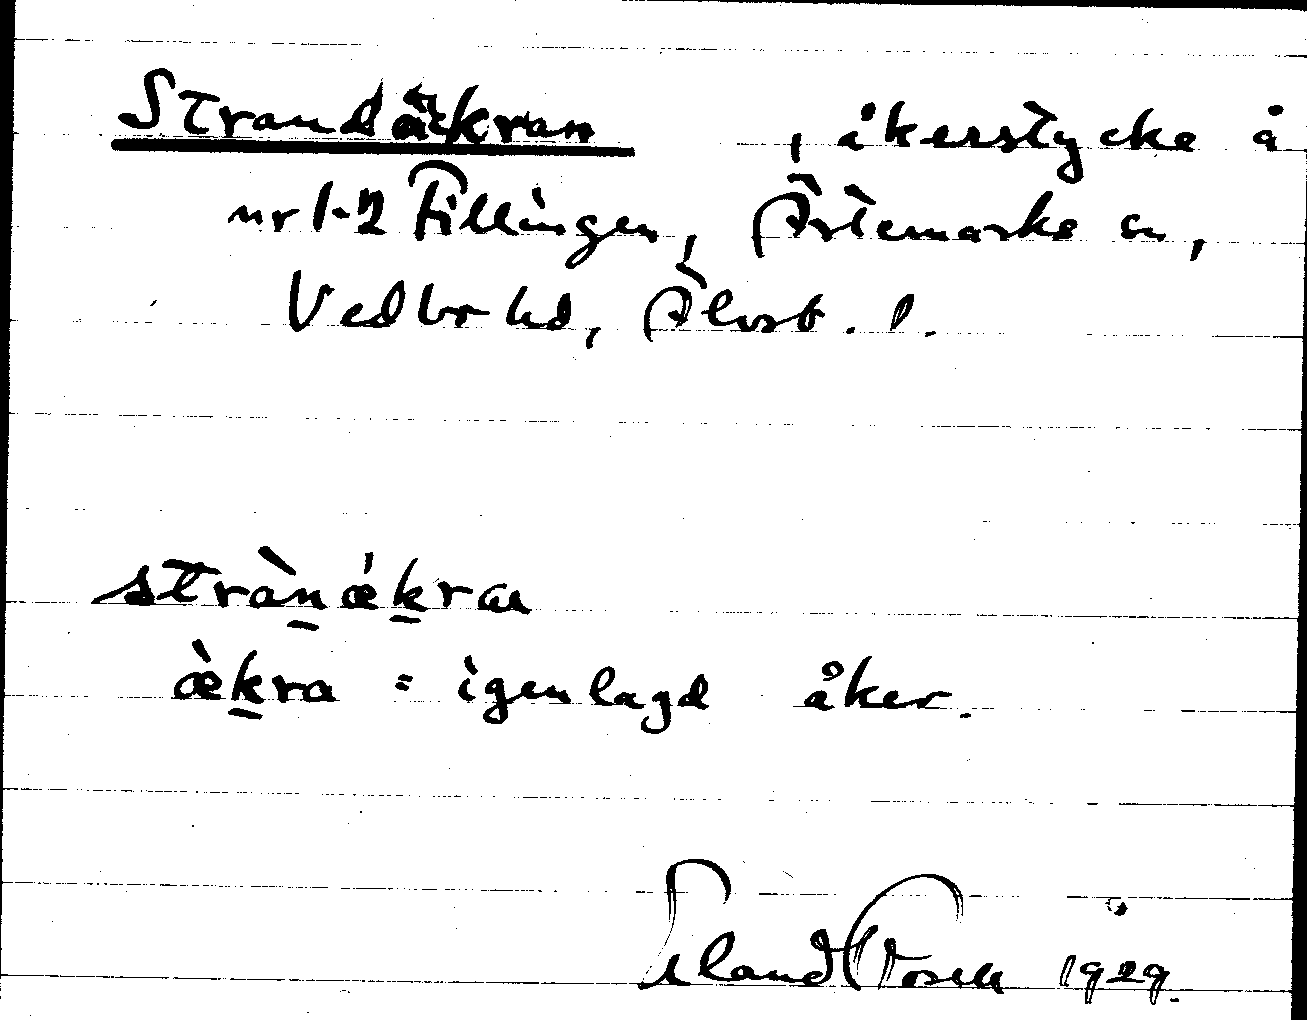 Strandäkran , åkerstycke å
nr 1-2 Fillingen, Ärtemarke sn,
Vedbo hd, Älvsb. l.
strànǽkran
æ̀kra = igenlagd åker.
Erland Rosell 1929.